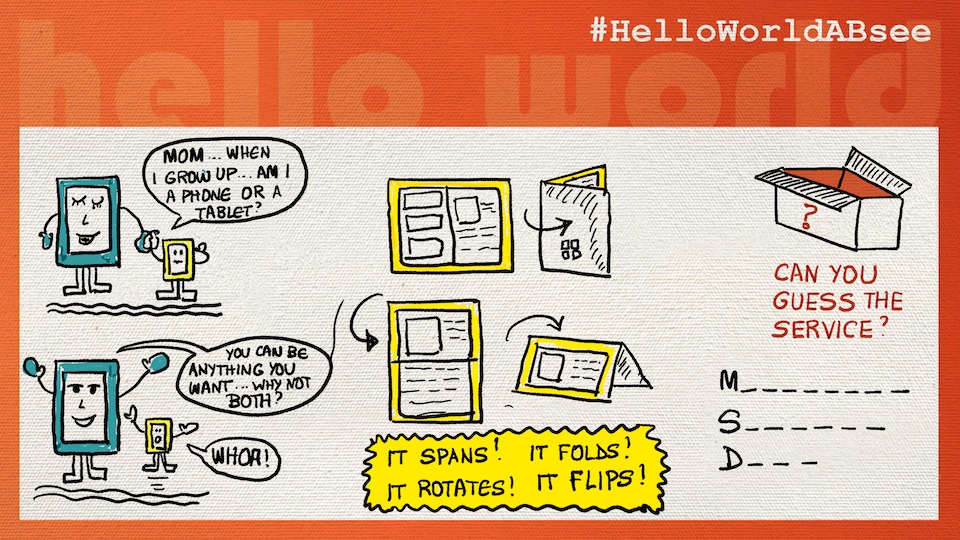 #HelloWorldABsee
hello world
MOM... WHEN
I GROW UP... AM I
A PHONE OR A
TABLET?
YOU CAN BE
ANYTHING YOU
WANT... WHY NOT
BOTH?
WHOA!
IT SPANS! IT FOLDS!
IT ROTATES! IT FLIPS!
?
CAN YOU
GUESS THE
SERVICE?
M_ _ _ _ _ _ _ _
S_ _ _ _ _ _
D_ _ _